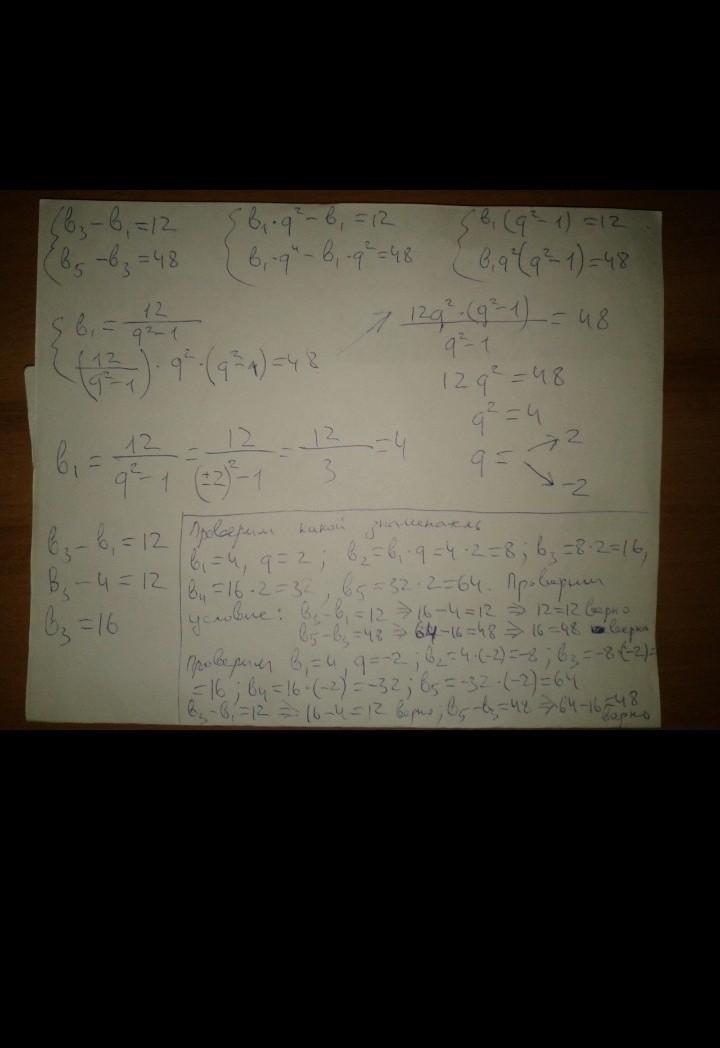 { b₃ − b₁ = 12
b₅ − b₃ = 48
{ b₁ · q² − b₁ = 12
b₁ · q⁴ − b₁ · q² = 48
{ b₁ (q² − 1) = 12
b₁q² (q² − 1) = 48
{ b₁ = 12/(q² − 1)
(12/(q² − 1)) · q² · (q² − 1) = 48
12q² · (q² − 1)/(q² − 1) = 48
12 q² = 48
q² = 4
q = 2
−2
b₁ = 12/(q² − 1) = 12/((±2)² − 1) = 12/3 = 4
b₃ − b₁ = 12
b₃ − 4 = 12
b₃ = 16
Проверим какой знаменатель
b₁ = 4, q = 2 ; b₂ = b₁ · q = 4 · 2 = 8 ; b₃ = 8 · 2 = 16,
b₄ = 16 · 2 = 32 , b₅ = 32 · 2 = 64. Проверим
условие: b₃ − b₁ = 12 ⇒ 16 − 4 = 12 ⇒ 12 = 12 верно
b₅ − b₃ = 48 ⇒ 64 − 16 = 48 ⇒ 16 = 48 верно
Проверим b₁ = 4, q = −2 ; b₂ = 4 · (−2) = −8 ; b₃ = −8 · (−2) =
= 16 ; b₄ = 16 · (−2) = −32 ; b₅ = −32 · (−2) = 64
b₃ − b₁ = 12 ⇒ 16 − 4 = 12 верно ; b₅ − b₃ = 48 ⇒ 64 − 16 = 48
верно